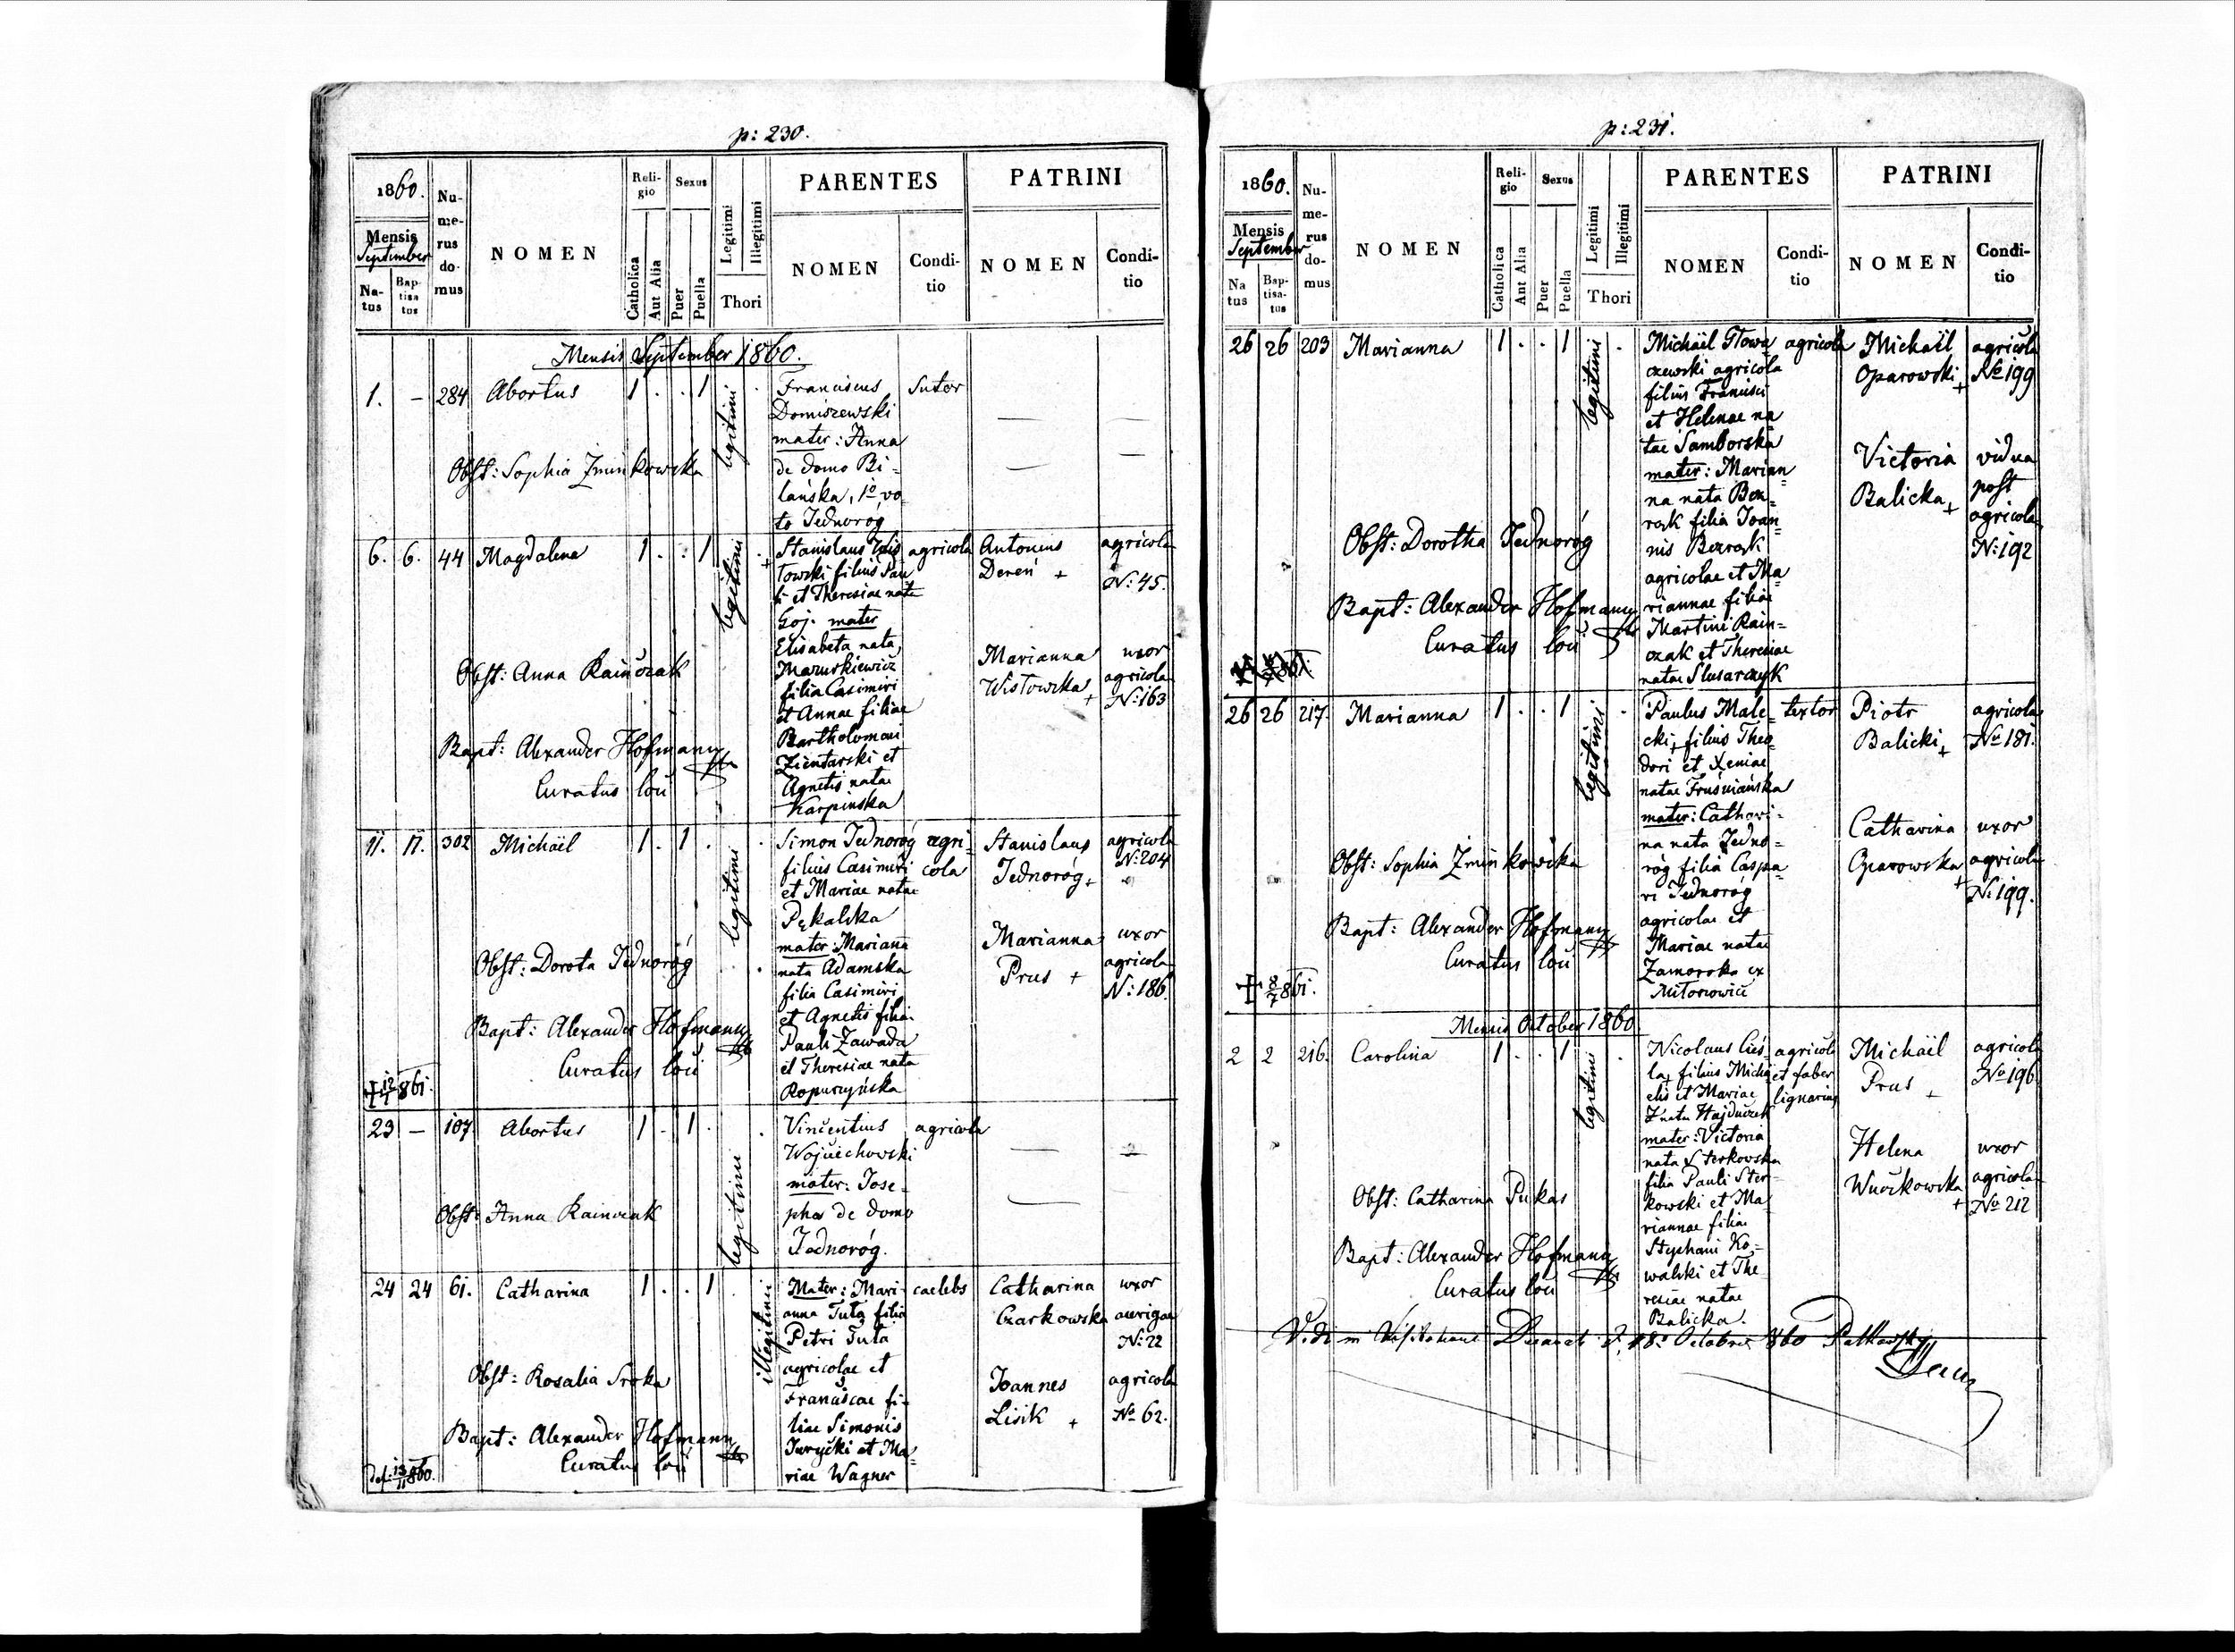 p: 230.
1860.
Mensis
September
Na-
tus
Bap-
tisa
tus
Nu-
me-
rus
do-
mus
NOMEN
Reli-
gio
Catholica
Aut Alia
Sexus
Puer
Puella
Legitimi
Illegitimi
Thori
PARENTES
NOMEN
Condi-
tio
PATRINI
NOMEN
Condi-
tio
Mensis September 1860.
1. – 284 Abortus 1 . . 1 legitimi .
Obst: Sophia Zminkowska
Franciscus
Domiszewski
mater: Anna
de domo Bi-
lańska, 1o vo-
to Jednoróg
Sutor
6. 6. 44 Magdalena 1 . . 1 legitimi .
Obst: Anna Rainczak
Bapt: Alexander Hofmann
Curatus loci
Stanislaus Wis
towski filius Pau
li et Theresiae nata
Goj. mater
Elisabeta nata
Mazurkiewicz
filia Casimiri
et Annae filiae
Bartholomaei
Zientarski et
Agnetis natae
Karpinska
agricola
Antonius
Dereń +
agricola
N: 45.
Marianna
Wisłowska +
uxor
agricola
N: 163
11. 11. 302 Michaël 1 . 1 . legitimi .
Obst: Dorota Jednoróg
Bapt: Alexander Hofmann
Curatus loci
+ 12/1 861.
Simon Jednoróg
filius Casimiri
et Mariae natae
Pękalska
mater: Mariana
nata Adamska
filia Casimiri
et Agnetis filiae
Pauli Zawada
et Theresiae nata
Ropuszyńska
agri-
cola
Stanislaus
Jednoróg +
agricola
N: 204
Marianna
Prus +
uxor
agricola
N: 186.
23 – 107 Abortus 1 . 1 . legitimi .
Obst: Anna Rainczak
Vincentius
Wojciechowski
mater: Jose-
pha de domo
Jednoróg.
agricola
24 24 61. Catharina 1 . . 1 . illegitimi
Obst: Rosalia Sroka
Bapt: Alexander Hofmann
Curatus loci
def: 13/11 860.
Mater: Mari-
anna Tuta filia
Petri Tuta
agricolae et
Franciscae fi-
liae Simonis
Jurycki et Ma-
riae Wagner
caelebs
Catharina
Czarkowska
uxor
aurigae
N: 22
Joannes
Lisik +
agricola
No 62.
p: 231.
1860.
Mensis
September
Na
tus
Bap-
tisa-
tus
Nu-
me-
rus
do-
mus
NOMEN
Reli-
gio
Catholica
Ant Alia
Sexus
Puer
Puella
Legitimi
Illegitimi
Thori
PARENTES
NOMEN
Condi-
tio
PATRINI
NOMEN
Condi-
tio
26 26 203 Marianna 1 . . 1 legitimi .
Obst: Dorothea Jednoróg
Bapt: Alexander Hofmann
Curatus loci
Michaël Głowa
czewski agricola
filius Francisci
et Helenae na
tae Samborska
mater: Marian
na nata Bez-
rosk filia Joan-
nis Bezrosk
agricolae et Ma-
riannae filiae
Martini Rain-
czak et Theresiae
natae Slusarczyk
agricola
Michaël
Oparowski +
agricola
No 199
Victoria
Balicka +
vidua
post
agricola
N: 192
26 26 217. Marianna 1 . . 1 legitimi .
Obst: Sophia Zminkowska
Bapt: Alexander Hofmann
Curatus loci
+ 8/7 861.
Paulus Male-
cki, filius Theo-
dori et Xeniae
natae Fruśniańska
mater: Cathari-
na nata Jedno-
róg filia Caspa-
ri Jednoróg
agricolae et
Mariae natae
Zamorska ex
Mitoszowice
textor
Piotr
Balicki +
agricola
No 181.
Catharina
Oparowska +
uxor
agricola
N: 199.
Mensis October 1860
2 2 216. Carolina 1 . . 1 legitimi .
Obst: Catharina Pukas
Bapt: Alexander Hofmann
Curatus loci
Nicolaus Cieś-
la, filius Micha-
elis et Mariae
nata Hajduczek
mater: Victoria
nata Sterkowska
filia Pauli Ster-
kowski et Ma
riannae filiae
Stephani Ko-
walski et The
resiae natae
Balicka.
agricola
et faber
lignarius
Michaël
Prus +
agricola
No 196.
Helena
Wuczkowska +
uxor
agricola
No 212
Vidi in Visitatione Decanali d. 18. Octobris 860